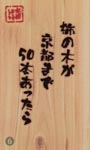 栃の木が
京都まで
50本あったら